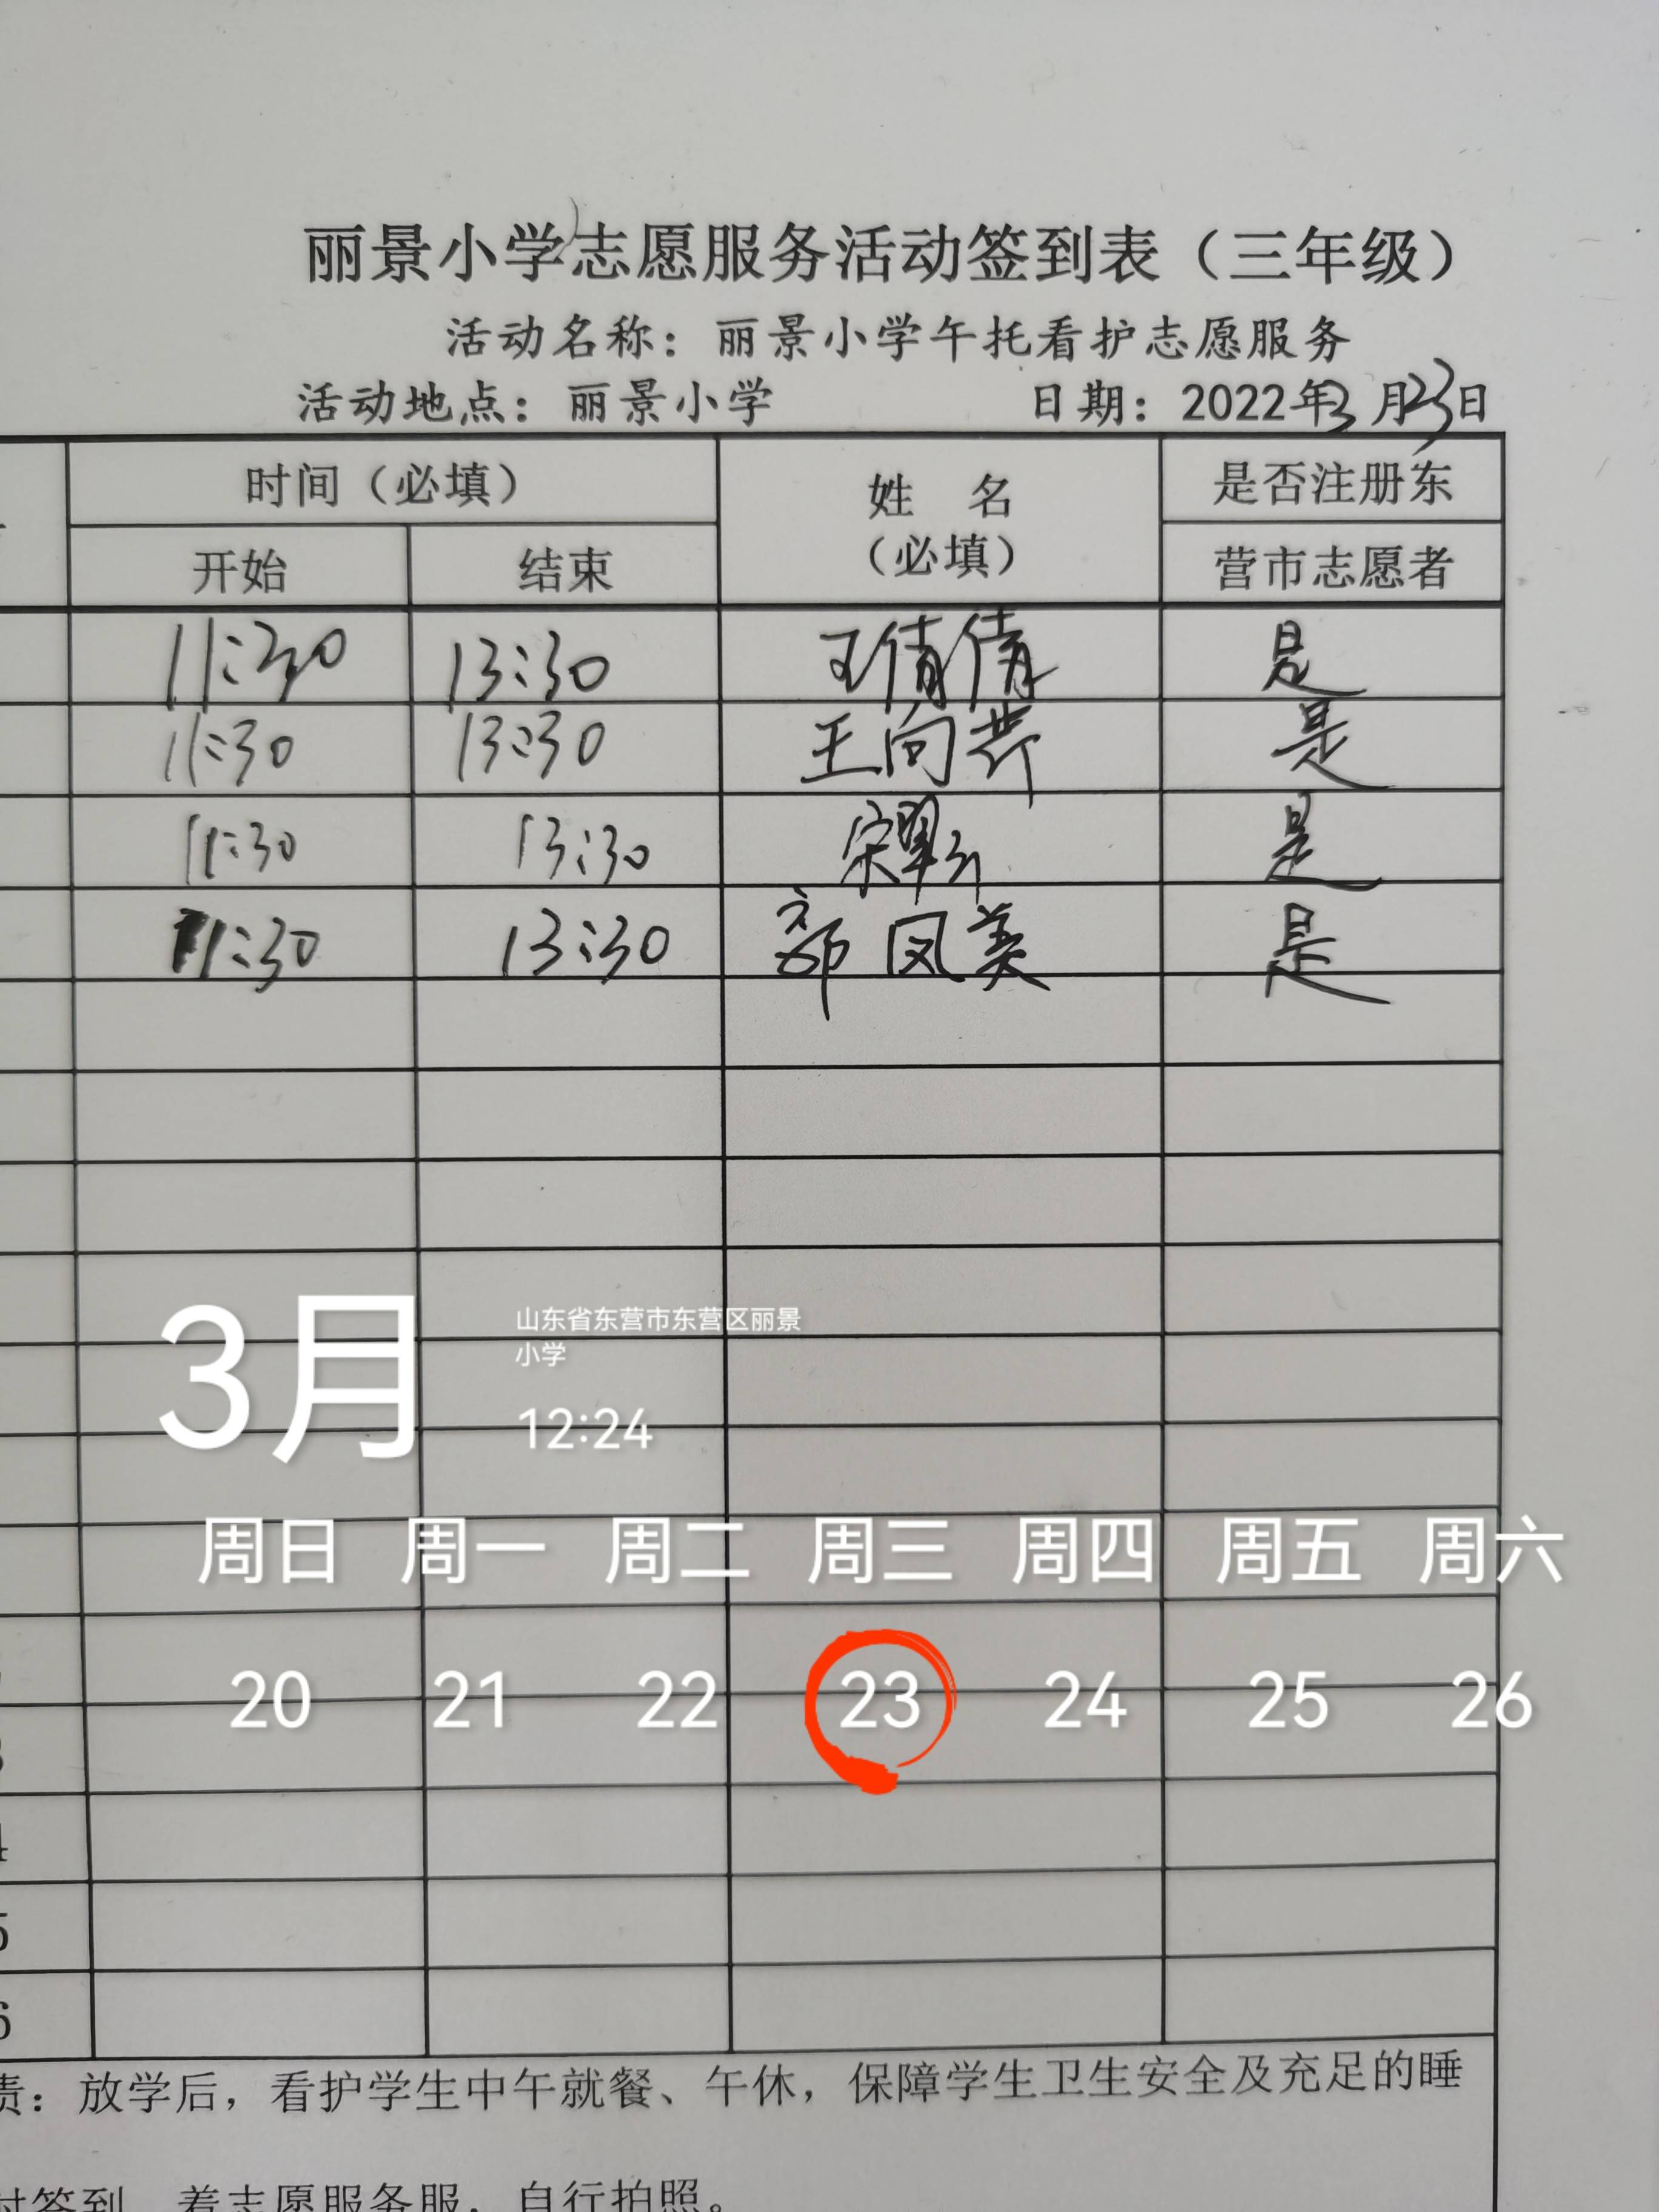 丽景小学志愿服务活动签到表（三年级）
活动名称：丽景小学午托看护志愿服务
活动地点：丽景小学 日期：2022年3月23日
时间（必填） 姓 名 是否注册东
开始 结束 （必填） 营市志愿者
11:30 13:30 王倩倩 是
11:30 13:30 王向芹 是
11:30 13:30 宋翠 是
11:30 13:30 郭凤美 是
3月
山东省东营市东营区丽景
小学
12:24
周日 周一 周二 周三 周四 周五 周六
20 21 22 23 24 25 26
5
6
责：放学后，看护学生中午就餐、午休，保障学生卫生安全及充足的睡
时签到，着志愿服务服，自行拍照。